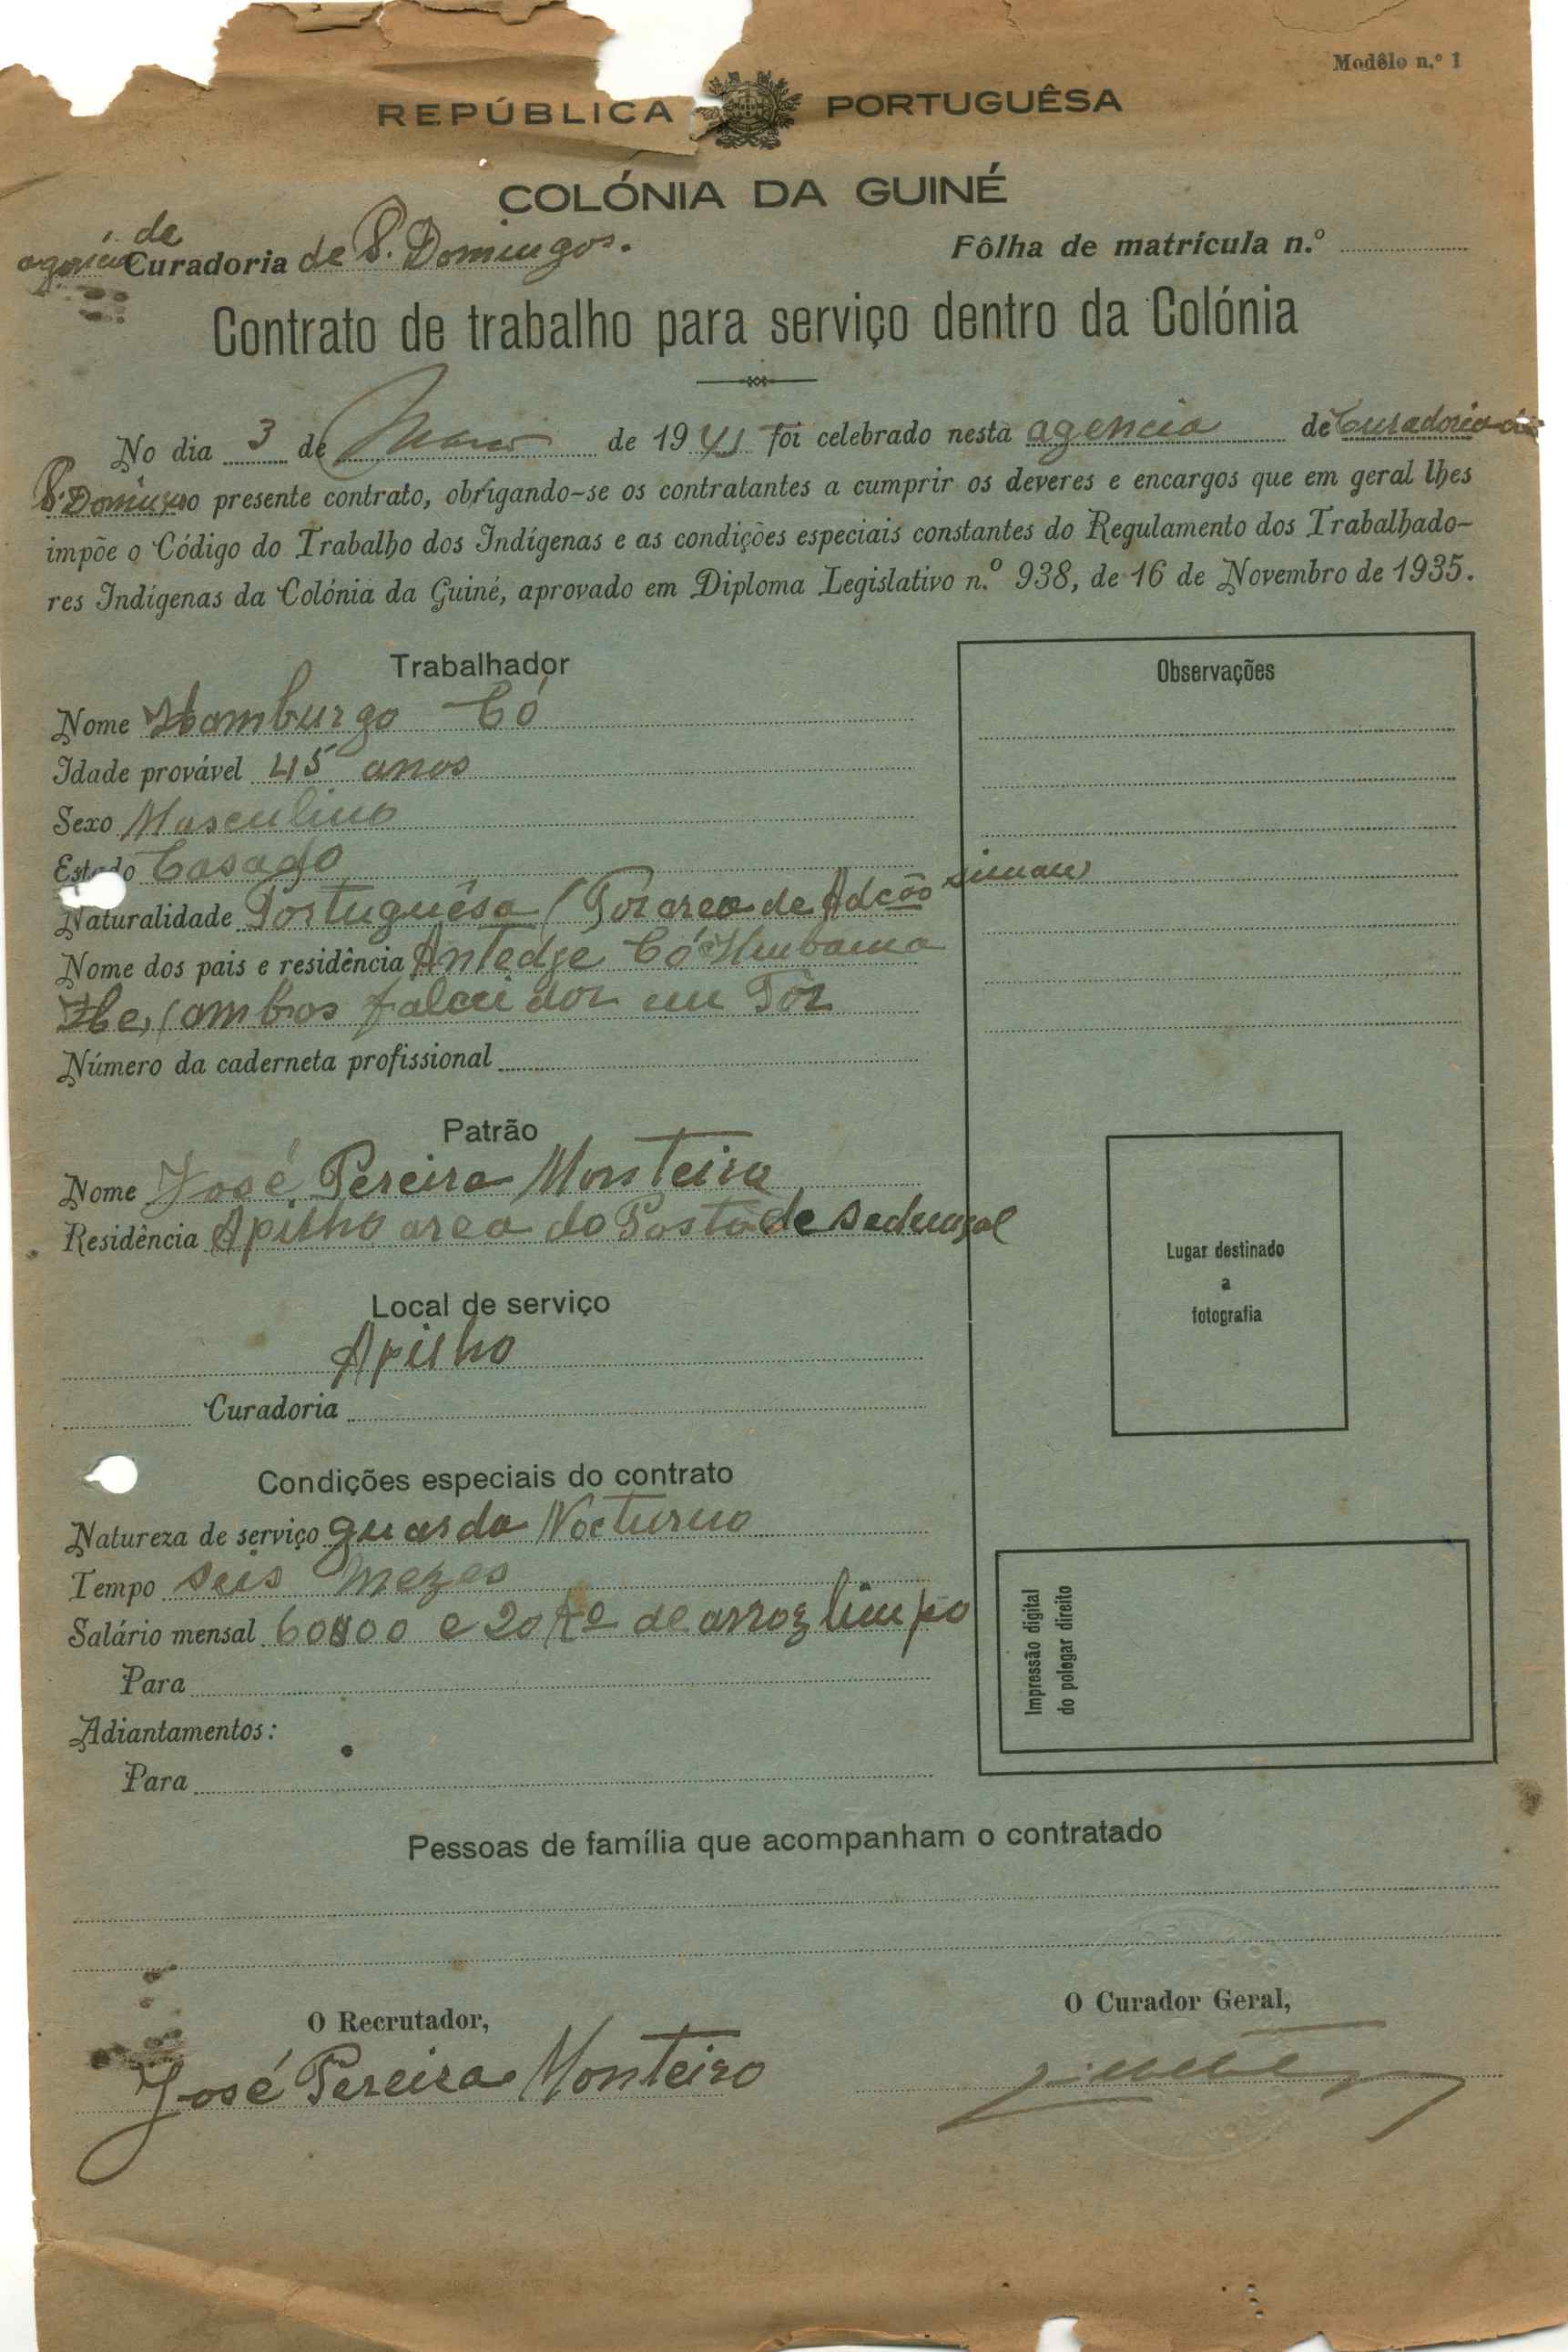 Modêlo n.º 1
REPÚBLICA PORTUGUÊSA
COLÓNIA DA GUINÉ
agencia de Curadoria de S. Domingos.
Fôlha de matrícula n.º
Contrato de trabalho para serviço dentro da Colónia
No dia 3 de de 1941 foi celebrado nesta agencia de Curadoria de
S. Domingos o presente contrato, obrigando-se os contratantes a cumprir os deveres e encargos que em geral lhes
impõe o Código do Trabalho dos Indígenas e as condições especiais constantes do Regulamento dos Trabalhado-
res Indígenas da Colónia da Guiné, aprovado em Diploma Legislativo n.º 938, de 16 de Novembro de 1935.
Trabalhador
Nome Hamburgo Có
Idade provável 45 anos
Sexo Masculino
Estado Casado
Naturalidade Portuguêsa (Por area de
Nome dos pais e residência Antedge Có
ambos em Pór
Número da caderneta profissional
Observações
Patrão
Nome José Pereira Monteiro
Residência Apilho area do Posto de Sedengal
Lugar destinado
a
fotografia
Local de serviço
Apilho
Curadoria
Condições especiais do contrato
Natureza de serviço guarda Nocturno
Tempo seis mezes
Salário mensal 60$00 e 20 Kº de arroz limpo
Para
Adiantamentos:
Para
Impressão digital
do polegar direito
Pessoas de família que acompanham o contratado
O Recrutador,
José Pereira Monteiro
O Curador Geral,